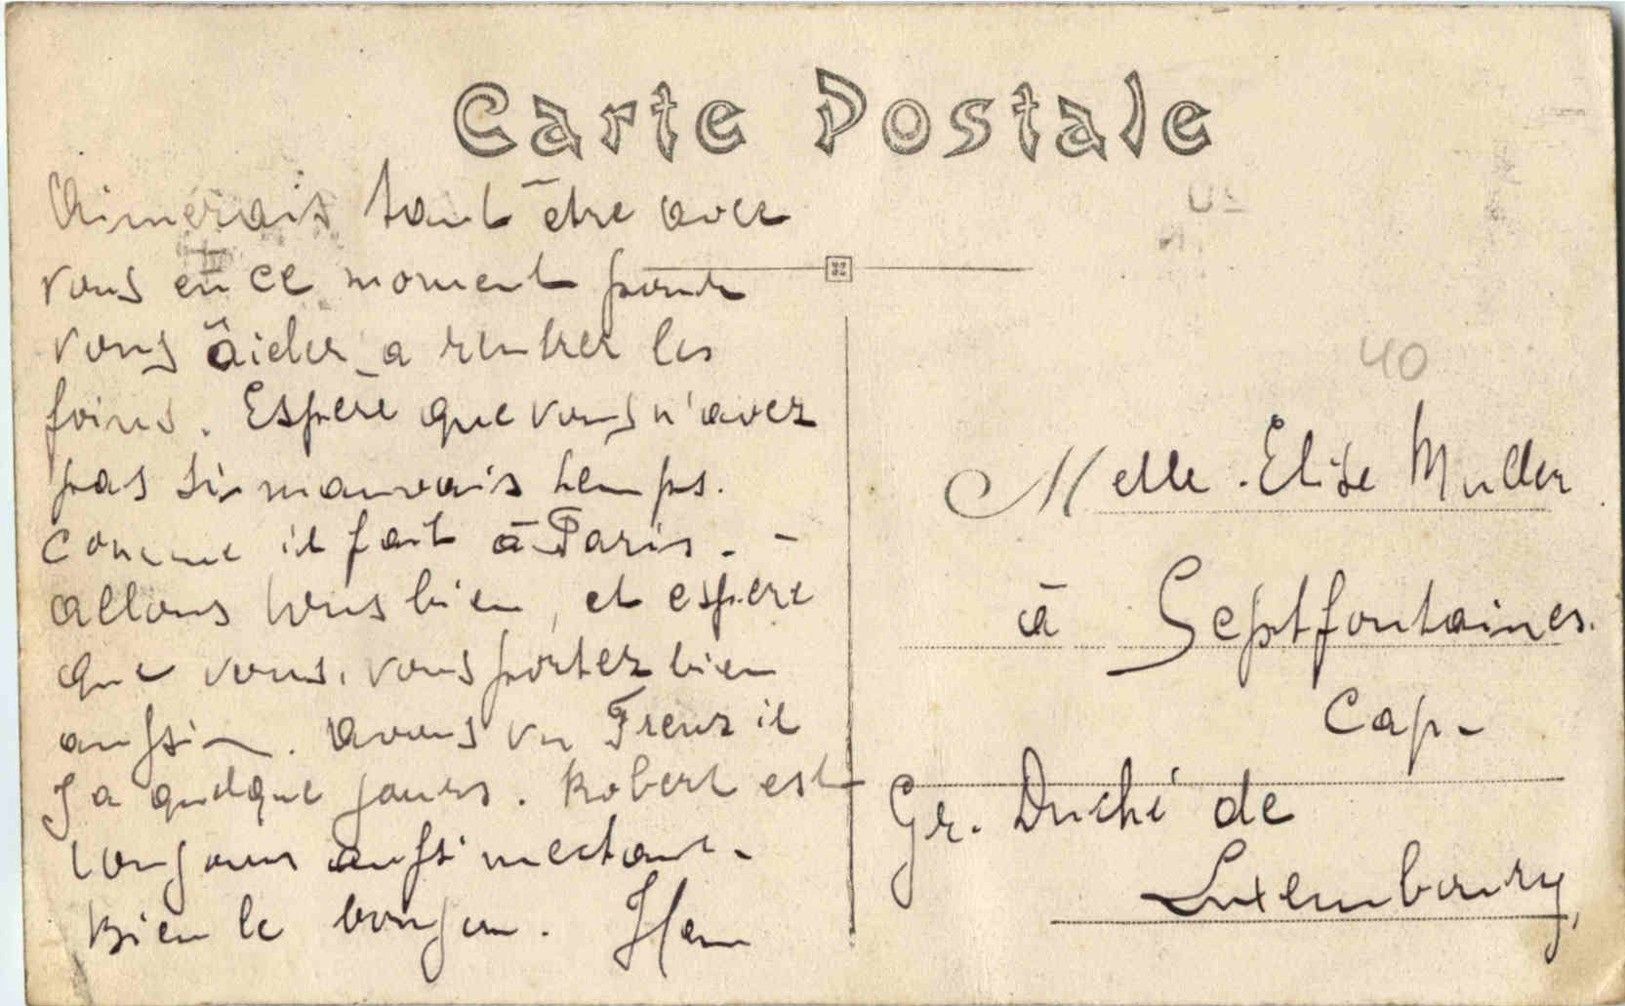 Carte Postale
Aimerais tant être avec
vous en ce moment pour
vous aider a rentrer les
foins. Espère que vous n'avez
pas si mauvais temps.
comme il fait à Paris. -
allons tous bien, et espère
que vous, vous portez bien
aussi. avons vu Frenz il
y a quelque jours. Robert est
toujours aussi mechant.
Bien le bonjour.
40
Melle. Elise Muller
à Septfontaines.
Cap-
Gr. Duché de
Luxembourg,